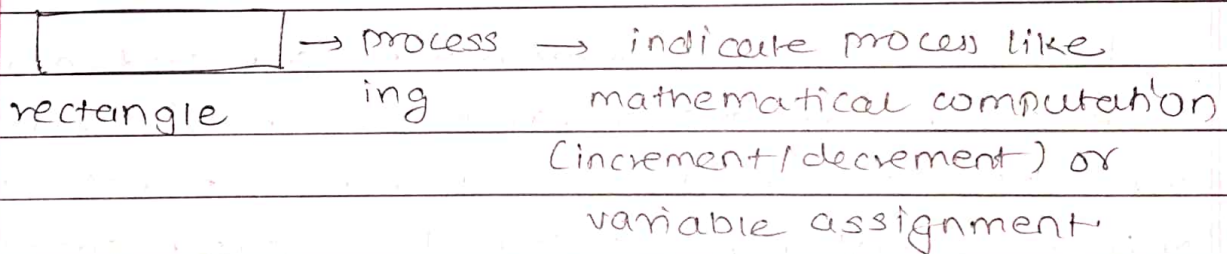 → process → indicate process like
rectangle ing mathematical computation
(increment/decrement) or
variable assignment.